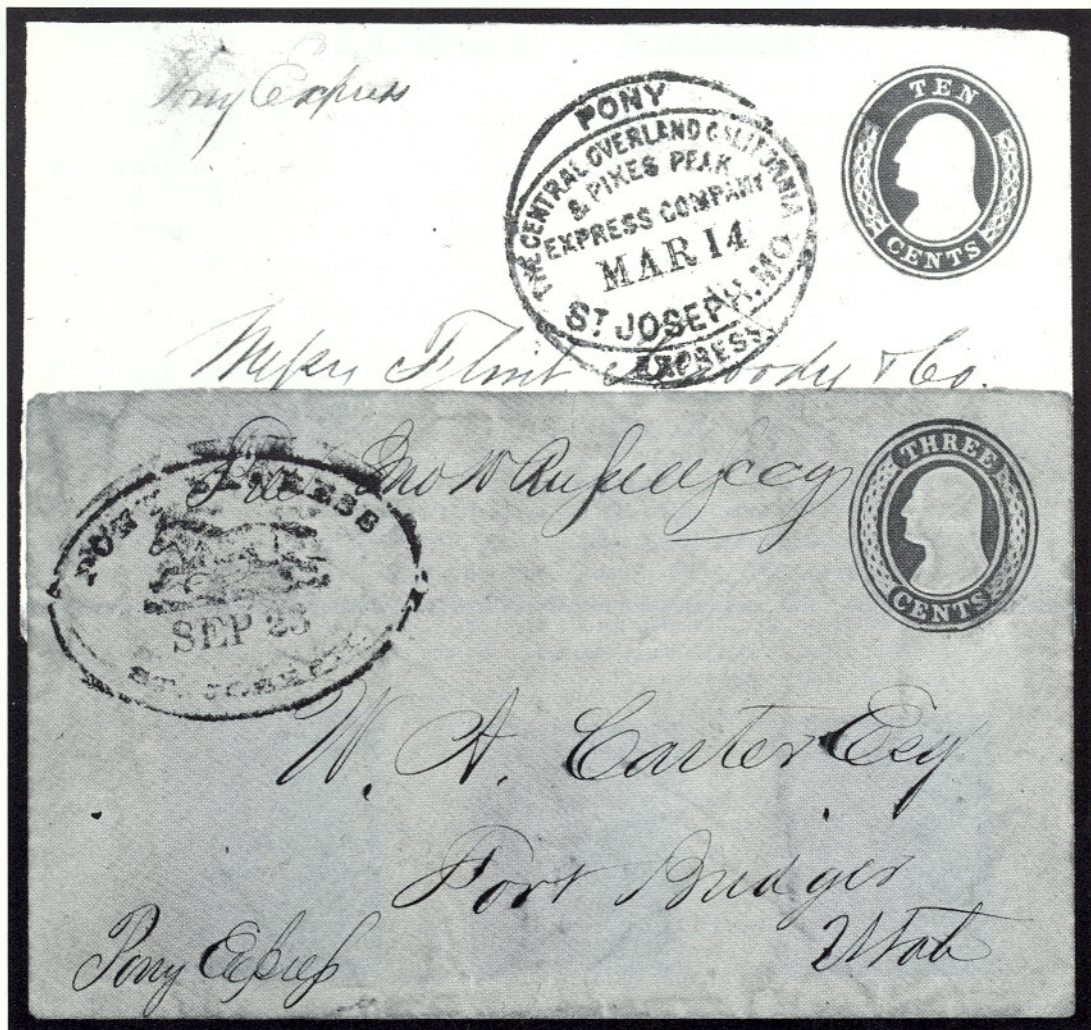 Pony Express
PONY
THE CENTRAL OVERLAND CALIFORNIA
& PIKES PEAK
EXPRESS COMPANY
MAR 14
ST JOSEPH. MO.
EXPRESS.
TEN
CENTS
Messrs Flint Peabody & Co.
PONY EXPRESS
SEP 23
ST. JOSEPH
Jno W Russell Esq
THREE
CENTS
W. A. Carter Esq
Fort Bridger
Utah
Pony Express